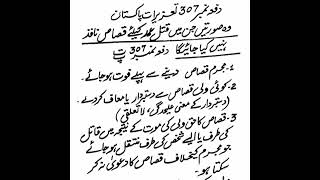 دفعہ نمبر 307 تعزیرات پاکستان
وہ صورتیں جن میں قتل عمد کیلئے قصاص نافذ
نہیں کیا جائیگا دفعہ نمبر 307 ت پ
1- مجرم قصاص دینے سے پہلے فوت ہو جائے۔
2- کوئی ولی قصاص سے دستبردار یا معاف کر دے۔
(دستبردار کے معنی علیحدگی، لا تعلق)
3- قصاص کا حق ولی کی موت کے نتیجہ میں قاتل
کی طرف یا ایسے شخص کی طرف منتقل ہو جائے
جو مجرم کیخلاف قصاص کا دعویٰ نہ کر
سکتا ہو۔